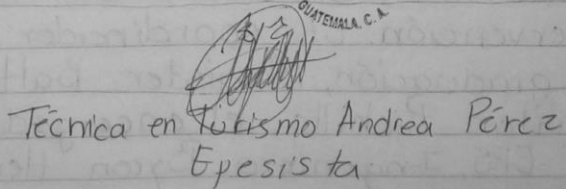 GUATEMALA, C. A.
Técnica en Turismo Andrea Pérez
Epesista